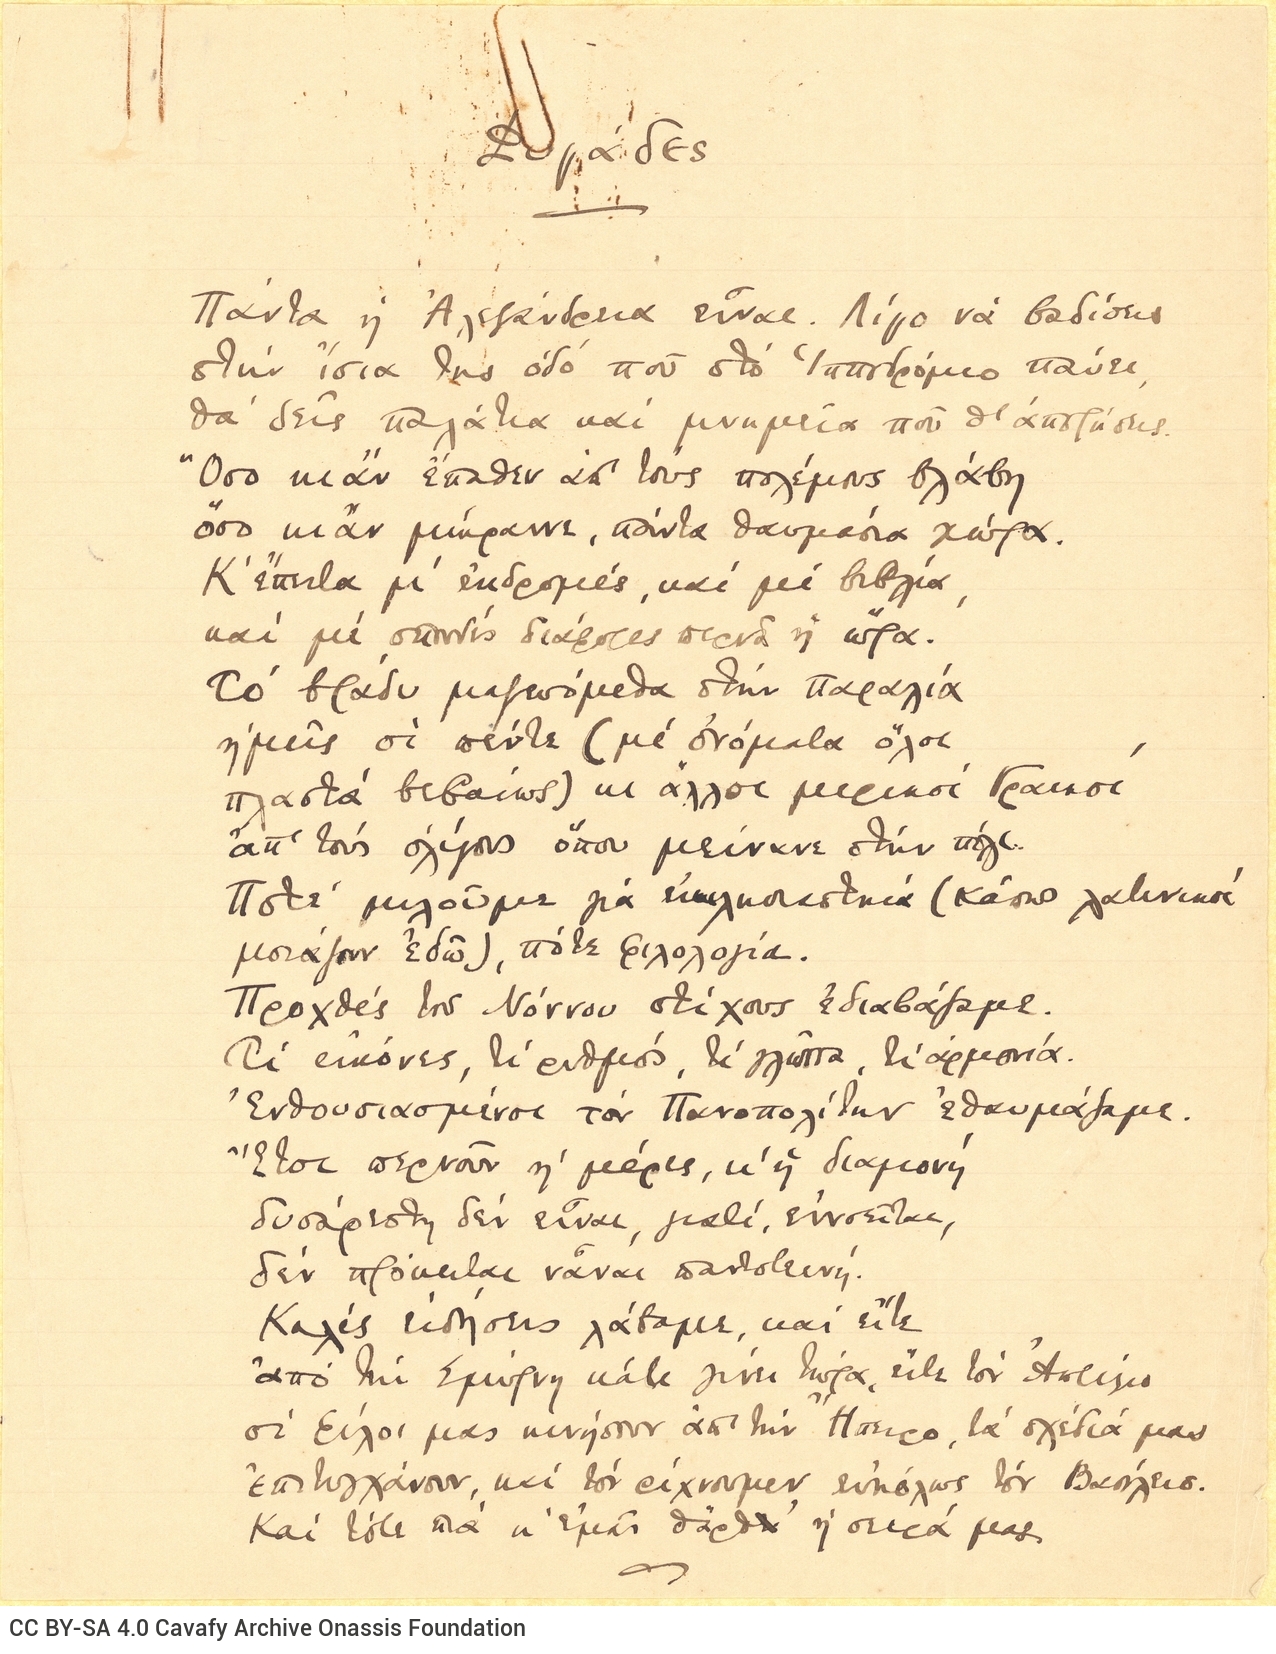 Φυγάδες
Πάντα ἡ Ἀλεξάνδρεια εἶναι. Λίγο νὰ βαδίσεις
στὴν ἴσια της ὁδὸ ποῦ στὸ Ἱπποδρόμιο παύει,
θὰ δεῖς παλάτια καὶ μνημεῖα ποῦ θ' ἀπορήσεις.
Ὅσο κι ἂν ἔπαθεν ἀπ' τοὺς πολέμους βλάβη
ὅσο κι ἂν μίκρανε, πάντα θαυμάσια χώρα.
Κ' ἔπειτα μὲ ἐκδρομές, καὶ μὲ βιβλία,
καὶ μὲ σπουδὲς διάφορες περνᾶ ἡ ὥρα.
Τὸ βράδυ μαζευόμεθα στὴν παραλία
ἡμεῖς οἱ πέντε (μὲ ὀνόματα ὅλοι
πλαστὰ βεβαίως) κι ἄλλοι μερικοὶ Γραικοὶ
ἀπ' τοὺς ὀλίγους ὅπου μείνανε στὴν πόλι.
Πότε μιλοῦμε γιὰ ἐκκλησιαστικὰ (κάπως λατινικοὶ
μοιάζουν ἐδῶ), πότε φιλολογία.
Προχθὲς τοῦ Νόννου στίχους ἐδιαβάζαμε.
Τί εἰκόνες, τί ρυθμός, τί γλῶττα, τί ἁρμονία.
Ἐνθουσιασμένοι τὸν Πανοπολίτην ἐθαυμάζαμε.
Ἔτσι περνοῦν ἡ μέρες, κ' ἡ διαμονὴ
δυσάρεστη δὲν εἶναι, γιατί, ἐννοεῖται,
δὲν πρόκειται νἆναι παντοτεινή.
Καλὲς εἰδήσεις λάβαμε, καὶ εἴτε
ἀπὸ τὴ Σμύρνη κάτι γίνει τώρα, εἴτε τὸν Ἀπρίλιο
οἱ φίλοι μας κινήσουν ἀπ' τὴν Ἤπειρο, τὰ σχέδιά μας
ἐπιτυγχάνουν, καὶ τὸν ρίχνουμεν εὐκόλως τὸν Βασίλειο.
Καὶ τότε πιὰ κ' ἐμᾶς θἄρθει ἡ σειρά μας.
CC BY-SA 4.0 Cavafy Archive Onassis Foundation